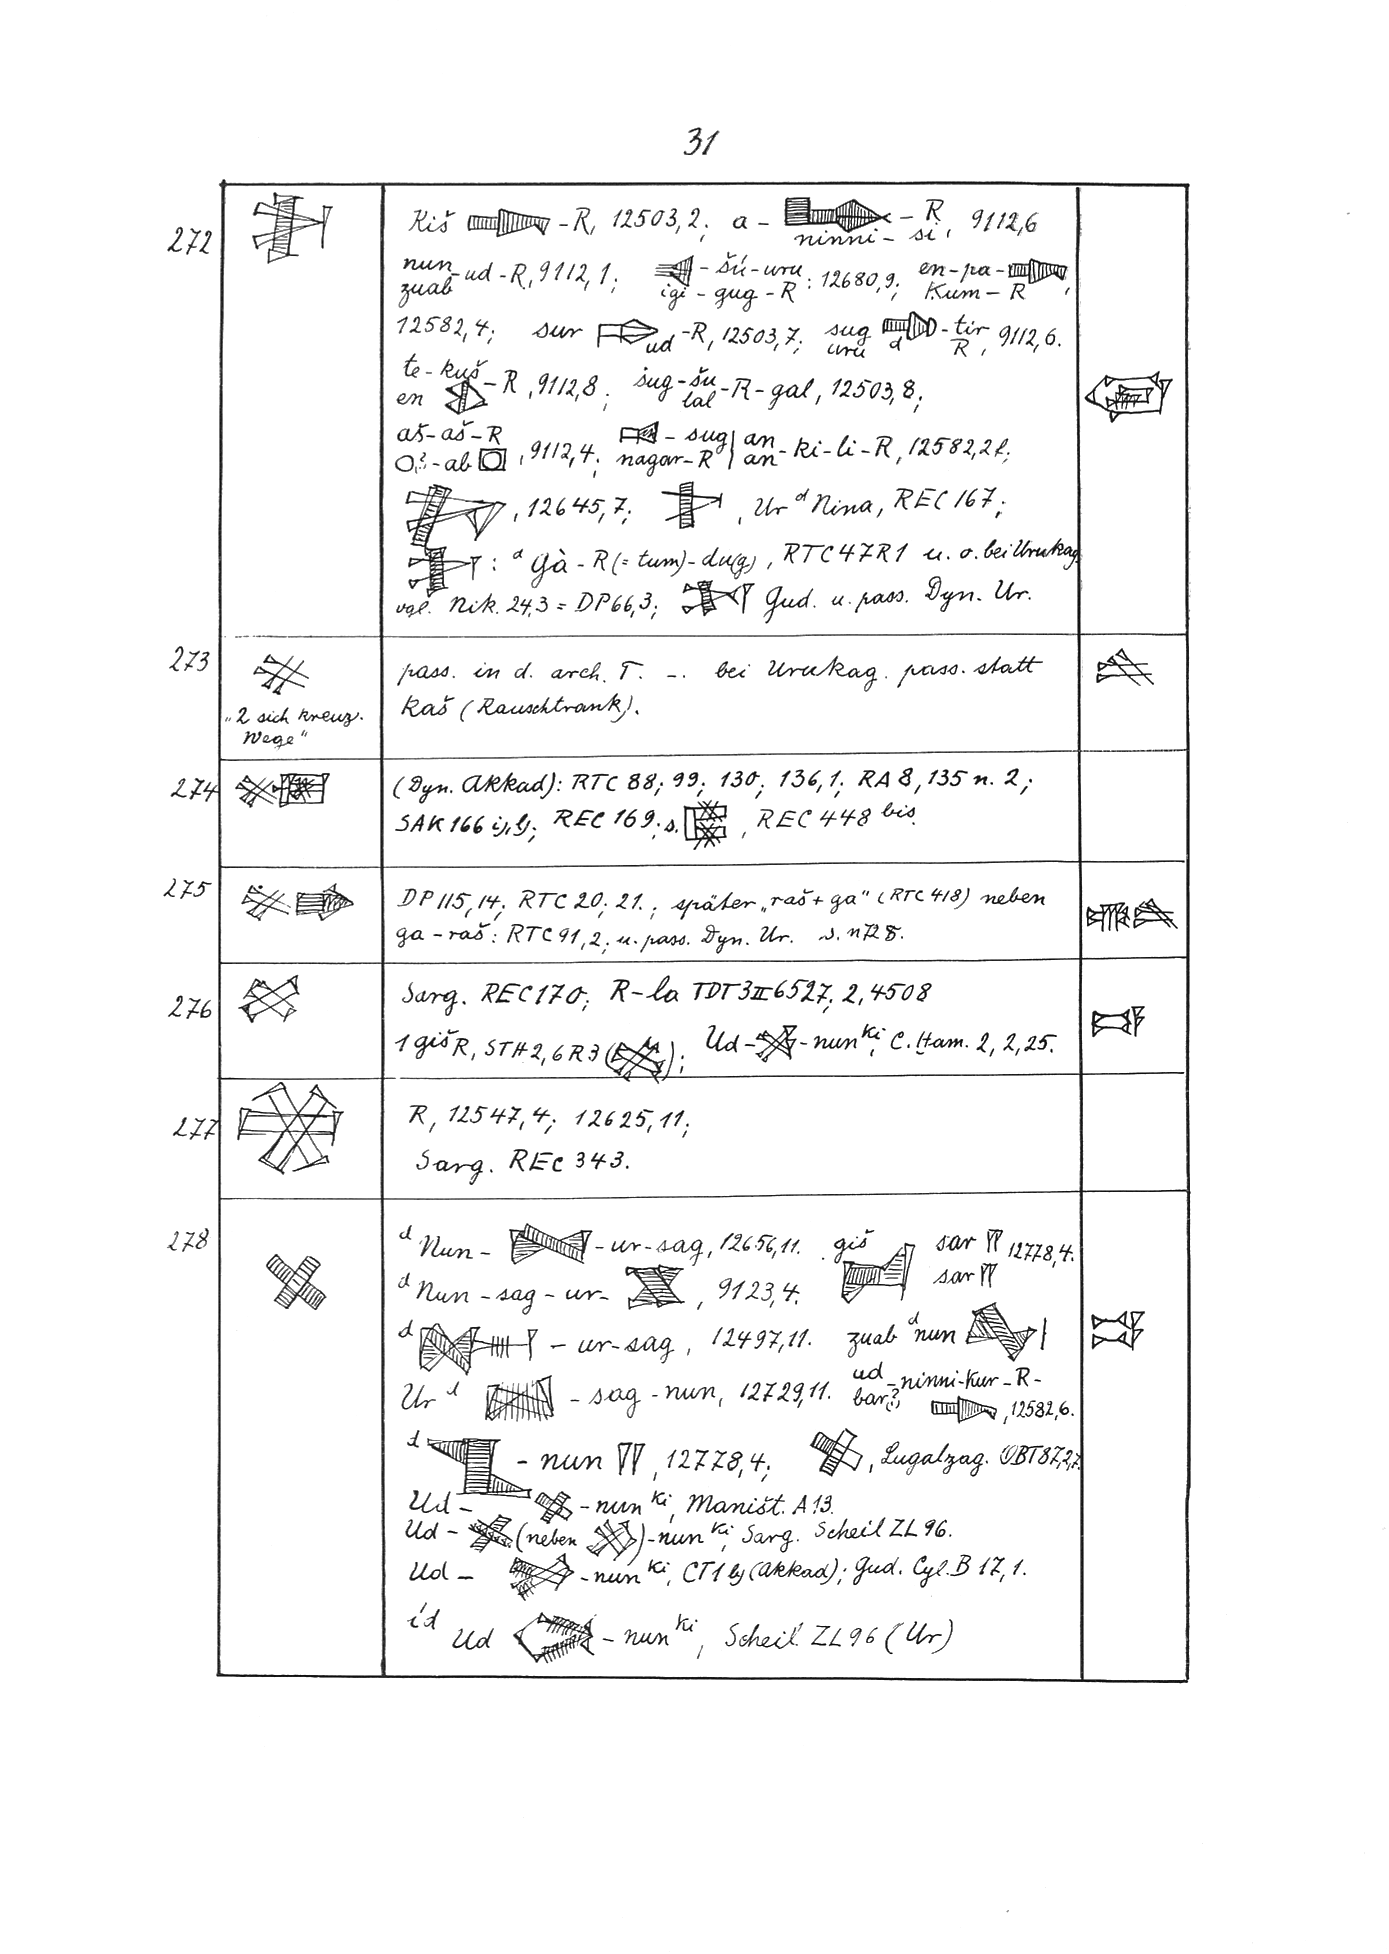 31
272
Kiš -R, 12503,2; a- -R, 9112,6
ninni-si
nun-ud-R, 9112,1; -šú-uru : 12680,9; en-pa-
zuab igi-gug-R Kum-R
12582,4; sur ud-R, 12503,7; sug -tir, 9112,6.
uru d R
te-kuš-R, 9112,8; šug-šu-R-gal, 12503,8;
en lal
aš-aš-R, 9112,4; -sug an-ki-li-R, 12582,2f;
O?-ab nagar-R an
, 12645,7; , Ur d Nina, REC 167;
: d gà-R (= tum)-du(g), RTC 47 R1 u. o. bei Urukag.
vgl. Nik. 24,3 = DP 66,3; Gud. u. pass. Dyn. Ur.
273
pass. in d. arch. T. -. bei Urukag. pass. statt
Kaš (Rauschtrank).
„2 sich kreuz.
Wege“
274
(Dyn. Akkad): RTC 88; 99; 130; 136,1; RA 8, 135 n. 2;
SAK 166 REC 169; s. , REC 448 bis.
275
DP 115,14; RTC 20; 21.; später „raš + ga“ (RTC 418) neben
ga-raš: RTC 91,2; u. pass. Dyn. Ur. s. n728.
276
Sarg. REC 170; R-la TDT 3 II 6527; 2,4508
1 giš R, STH 2,6 R3 ( ); Ud- -nun ki, C. Ham. 2, 2, 25.
277
R, 12547,4; 12625,11;
Sarg. REC 343.
278
d Nun- -ur-sag, 12656,11. giš sar 12778,4.
d Nun-sag-ur- , 9123,4. sar
d -ur-sag, 12497,11. zuab d nun
Ur d -sag-nun, 12729,11. ud-ninni-kur-R-
bar? , 12582,6.
d -nun , 12778,4; , Lugalzag. OBT 87,2,7.
Ud- -nun ki, Maništ. A 13.
Ud- (neben )-nun ki, Sarg. Scheil ZL 96.
Ud- -nun ki, CT 1 (Akkad); Gud. Cyl. B 17,1.
íd Ud -nun ki, Scheil ZL 96 (Ur)